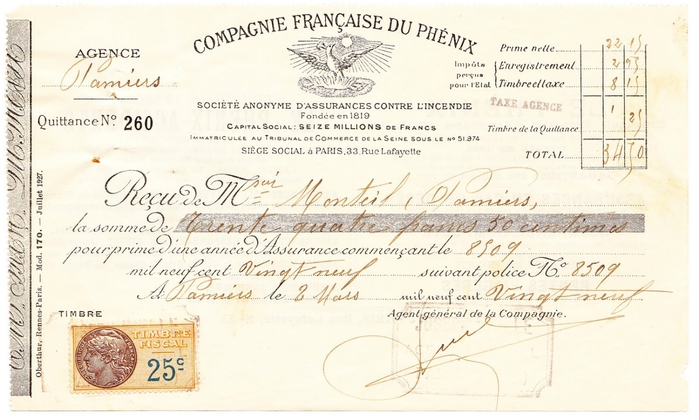 COMPAGNIE FRANÇAISE DU PHÉNIX
AGENCE
Pamiers
Quittance No 260
SOCIÉTÉ ANONYME D'ASSURANCES CONTRE L'INCENDIE
Fondée en 1819
CAPITAL SOCIAL: SEIZE MILLIONS DE FRANCS
IMMATRICULÉE AU TRIBUNAL DE COMMERCE DE LA SEINE SOUS LE No 51.974
SIÈGE SOCIAL à PARIS, 33, Rue Lafayette
Prime nette 22 15
Impôts perçus pour l'État
Enregistrement 2 95
Timbre et taxe 8 15
TAXE AGENCE
Timbre de la Quittance 1 25
TOTAL 34 50
Reçu de M sieur Monteil, Pamiers,
la somme de Trente quatre francs 50 centimes
pour prime d'une année d'Assurance commençant le 8509
mil neuf cent Vingt neuf suivant police No 8509
A Pamiers le 2 Mars mil neuf cent Vingt neuf
Agent général de la Compagnie.
TIMBRE
TIMBRE FISCAL
25c
Oberthur, Rennes-Paris. — Mod. 170. — Juillet 1927.